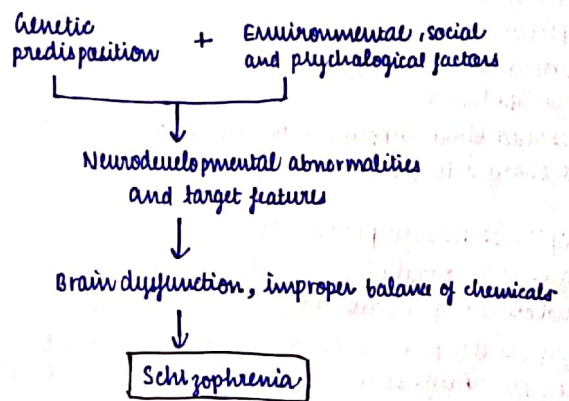 Genetic predisposition + Environmental, social and psychalogical factors
Neurodevelopmental abnormalities
and target features
Brain dysfunction, improper balance of chemicals
Schizophrenia